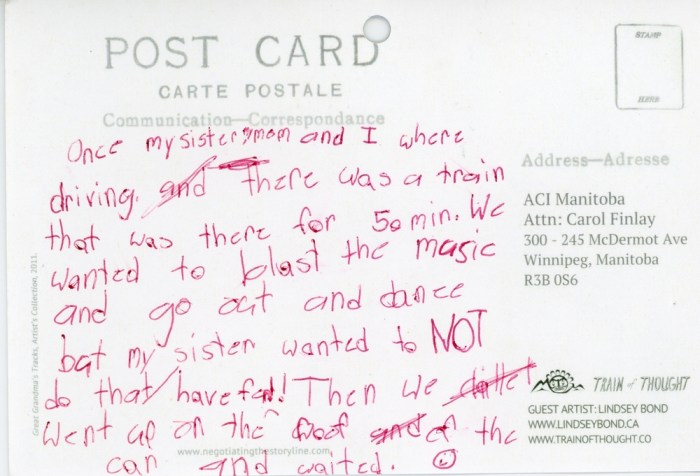 POST CARD
CARTE POSTALE
Communication—Correspondance
STAMP
TIMBRE
Once my sister, mom and I where
driving. and there was a train
that was there for 50 min. We
wanted to blast the music
and go out and dance
but my sister wanted to NOT
do that/have fun! Then we
went up on the roof and of the
car and waited. ☺
Address—Adresse
ACI Manitoba
Attn: Carol Finlay
300 - 245 McDermot Ave
Winnipeg, Manitoba
R3B 0S6
TRAIN of THOUGHT
GUEST ARTIST: LINDSEY BOND
WWW.LINDSEYBOND.CA
WWW.TRAINOFTHOUGHT.CO
www.negotiatingthestoryline.com
Great Grandma's Tracks, Artist's Collection, 2011.